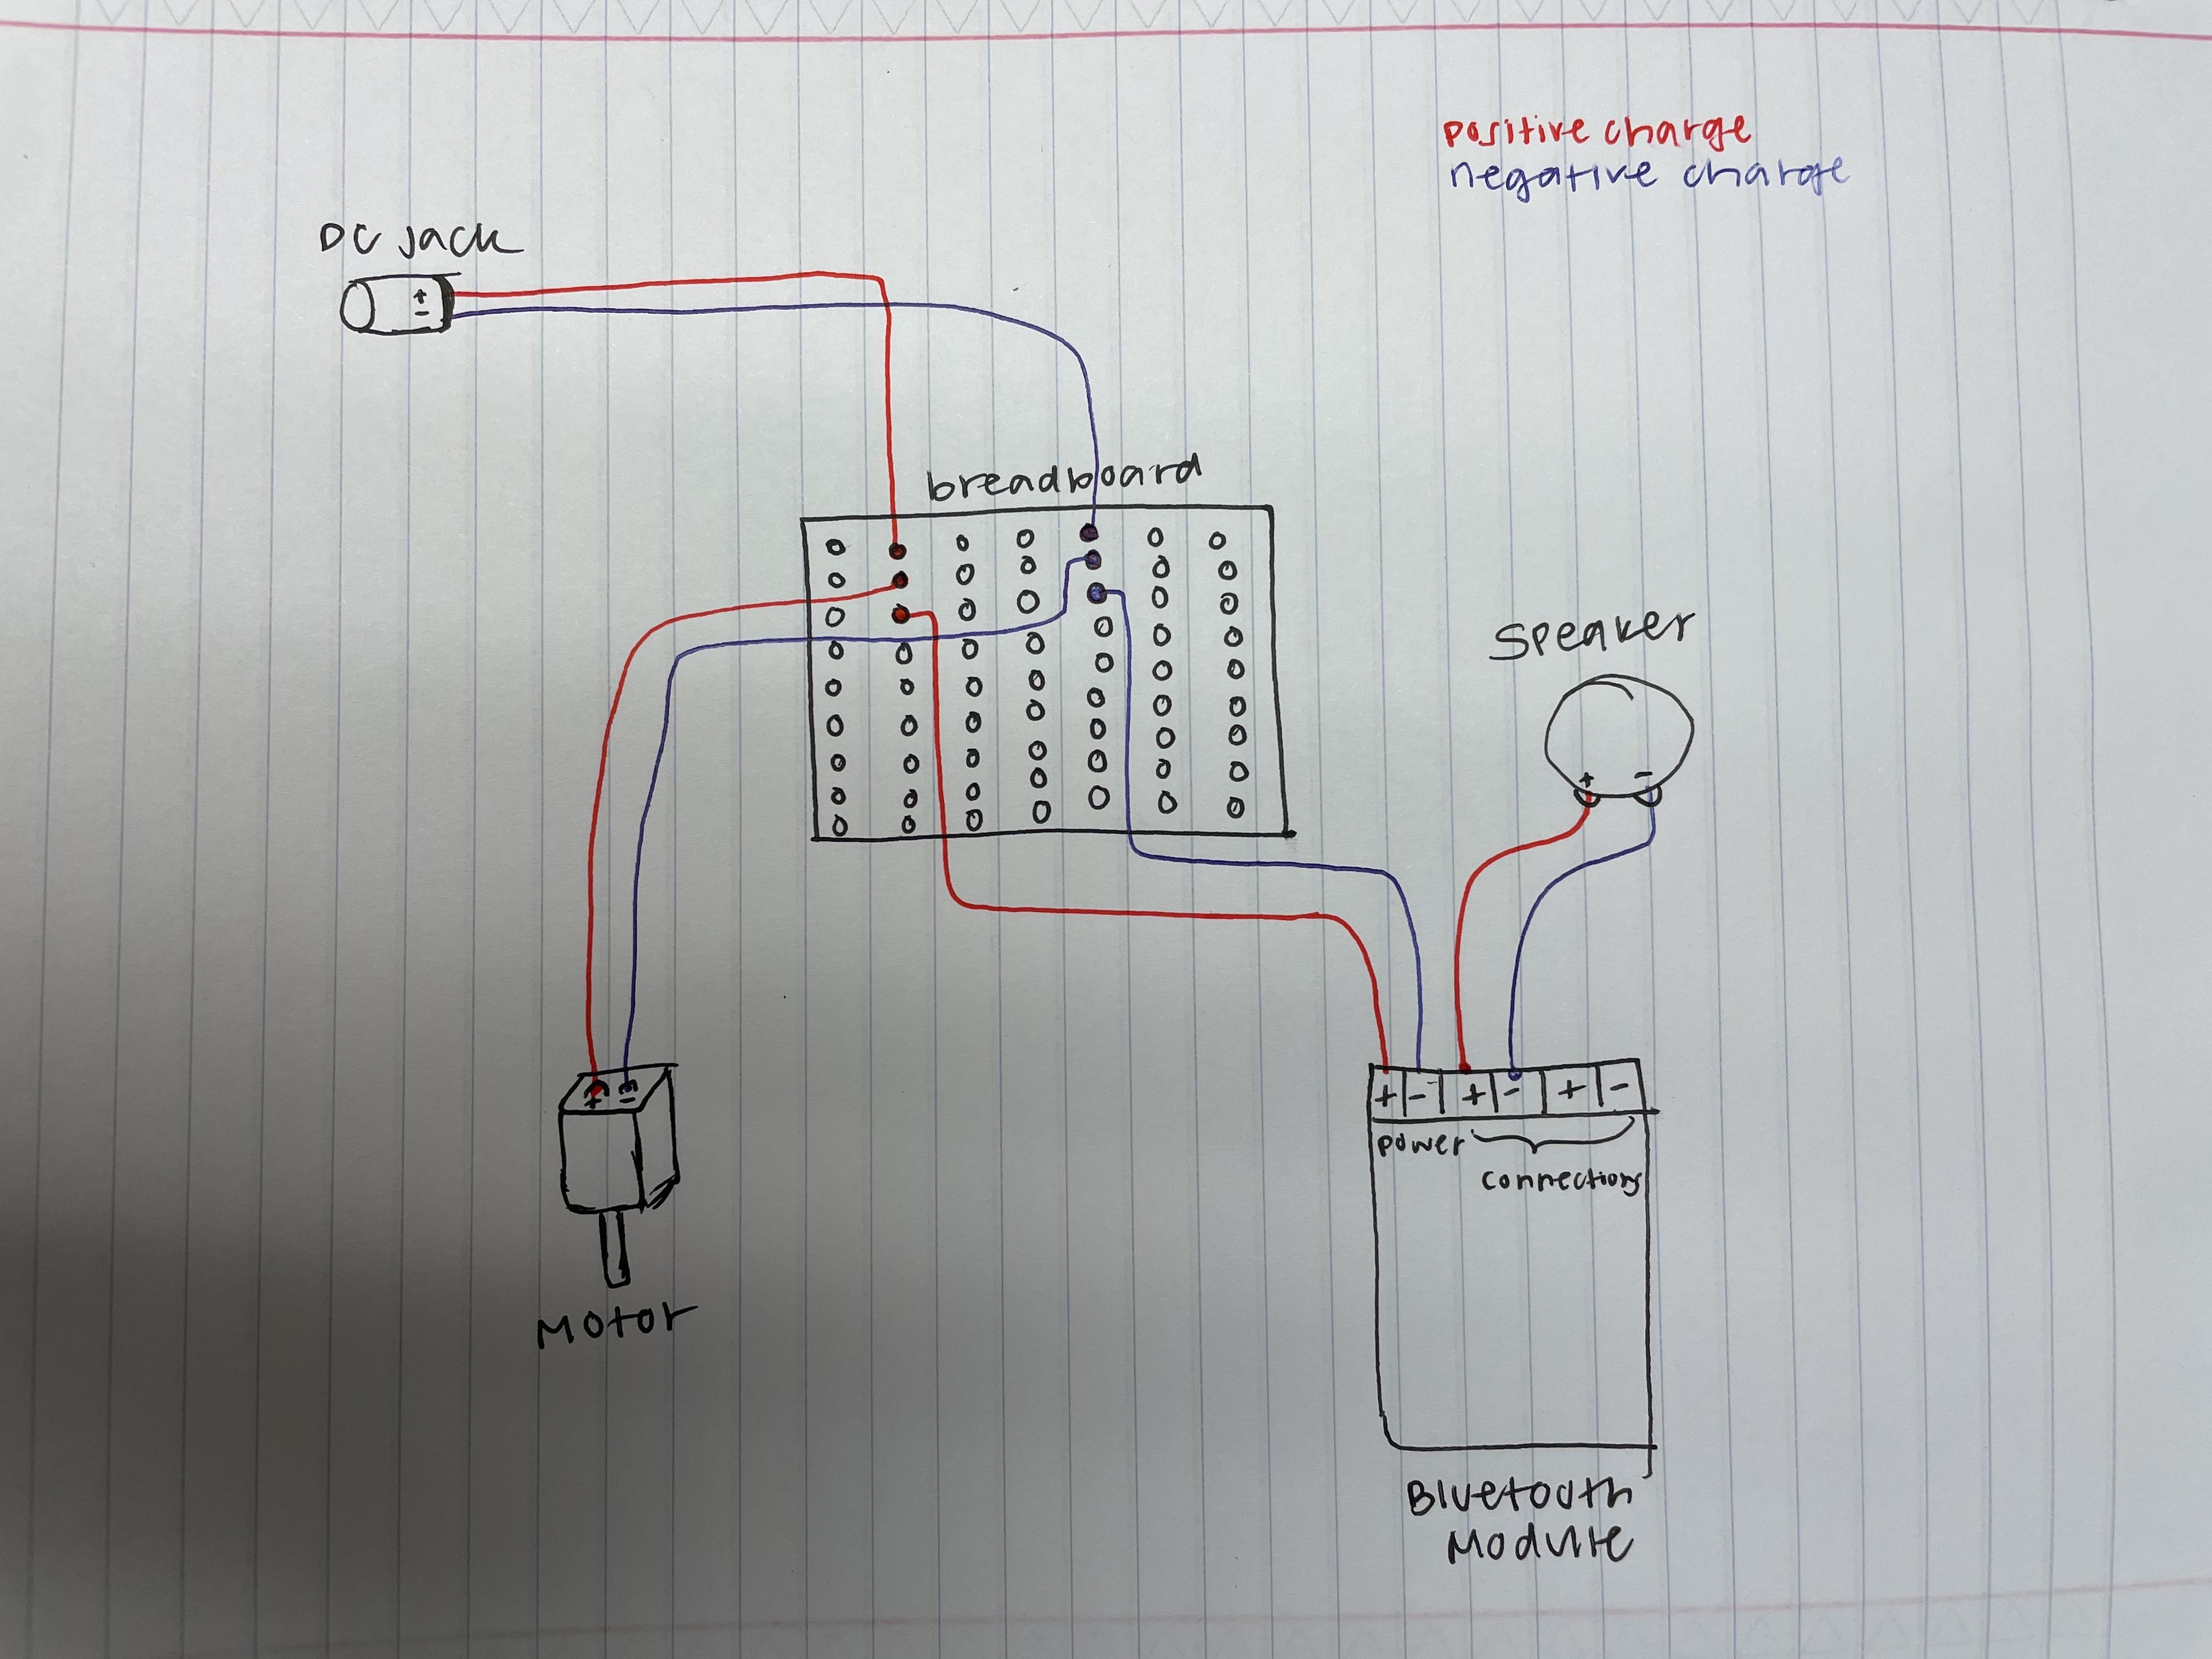 positive charge
negative charge
DC jack
+
-
breadboard
speaker
+ -
+ - + - + -
power
connections
+ -
Motor
Bluetooth
Module